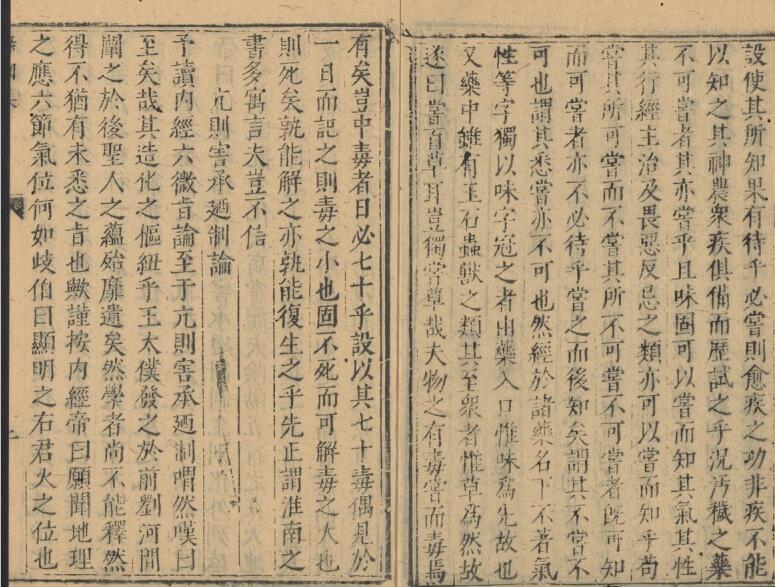 設使其所知果有待乎必嘗則愈疾之功非疾不能
以知之其神農衆疾俱備而歷試之乎況汚穢之藥
不可嘗者其亦嘗乎且味固可以嘗而知其氣其性
其行經主治及畏惡反忌之類亦可以嘗而知乎苟
嘗其所可嘗而不嘗其所不可嘗不可嘗者既可知
而可嘗者亦不必待乎嘗之而後知矣謂其不嘗不
可也謂其悉嘗亦不可也然經於諸藥名下不著氣
性等字獨以味字冠之者由藥入口惟味爲先故也
又藥中雖有玉石蟲獸之類其至衆者惟草爲然故
遂曰嘗百草耳豈獨嘗草哉夫物之有毒嘗而毒焉
有矣豈中毒者日必七十乎設以其七十毒偶見於
一日而記之則毒之小也固不死而可解毒之大也
則死矣孰能解之亦孰能復生之乎先正謂淮南之
書多寓言夫豈不信
亢則害承廼制論
予讀內經六微旨論至于亢則害承廼制喟然嘆曰
至矣哉其造化之樞紐乎王太僕發之於前劉河間
闡之於後聖人之蘊殆靡遺矣然學者尚不能釋然
得不猶有未悉之旨也歟謹按內經帝曰願聞地理
之應六節氣位何如岐伯曰顯明之右君火之位也